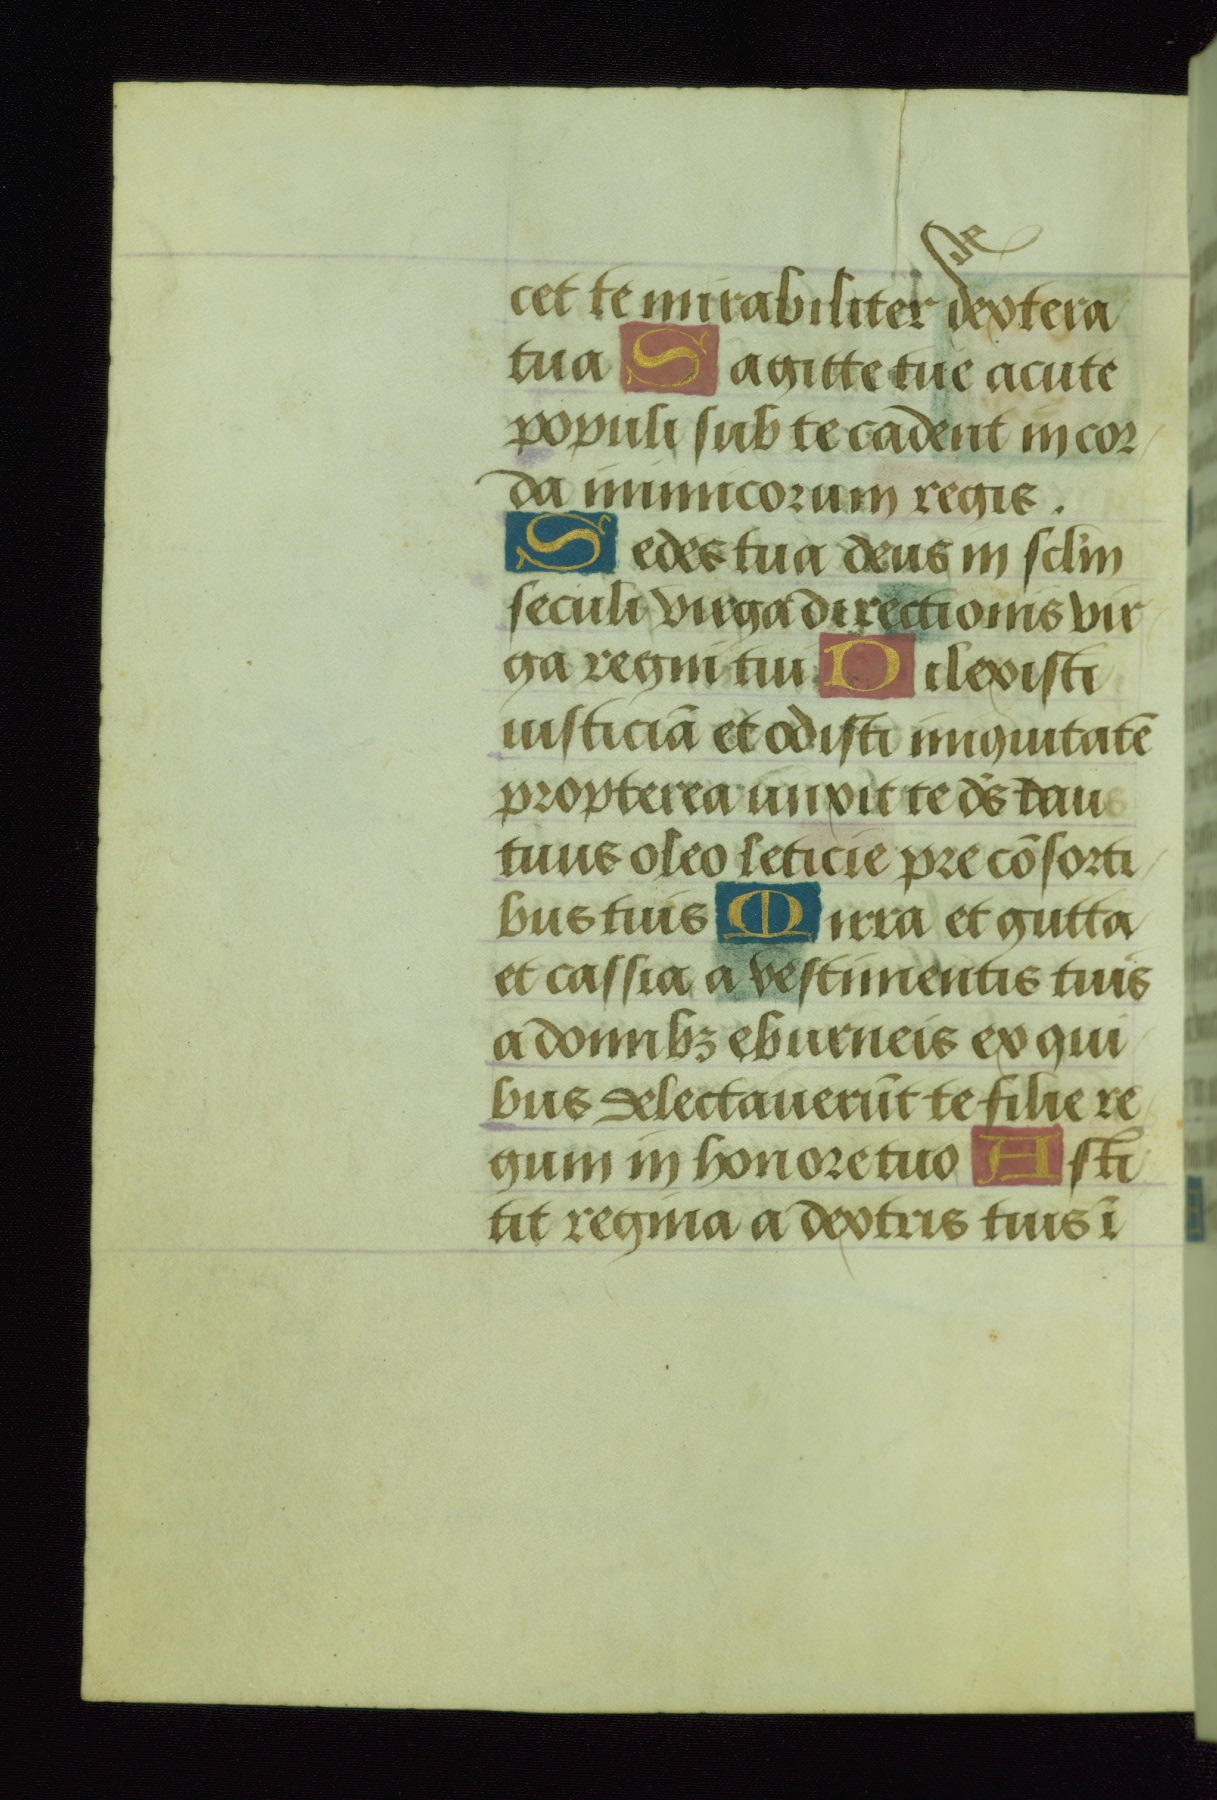 cet te mirabiliter dextera
tua Sagitte tue acute
populi sub te cadent in cor
da inimicorum regis .
Sedes tua deus in sclm̄
seculi virga directionis vir
ga regni tui Dilexisti
iusticiā et odisti iniquitatē
propterea unxit te ds̄ deus
tuus oleo leticie pre cōsorti
bus tuis Mirra et gutta
et cassia a vestimentis tuis
a domibꝫ eburneis ex qui
bus delectauerūt te filie re
gum in honore tuo Asti
tit regina a dextris tuis ī